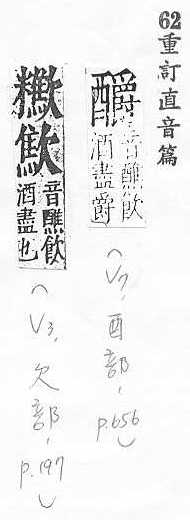 62重訂直音篇
釂
音醮飲
酒盡爵
(V7, 酉部, p.656)
音醮飲
酒盡也
(V3, 欠部, p.197)